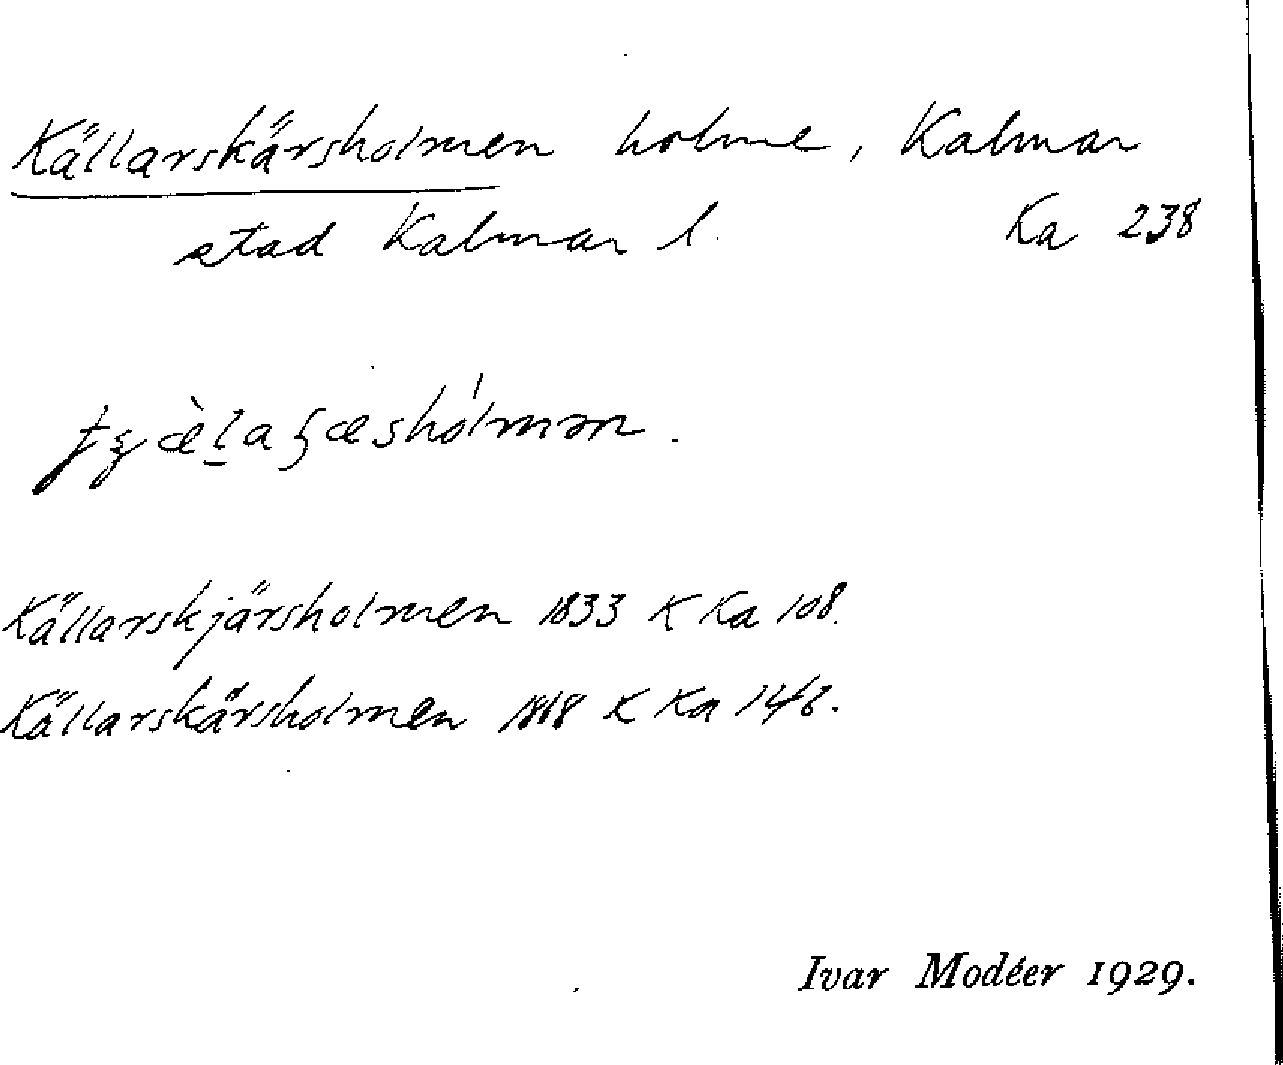 Källarskärsholmen holme, Kalmar
stad Kalmar l. Ka 238
Källarskjärsholmen 1833 K Ka 108.
Källarskärsholmen 1868 K Ka 146.
Ivar Modéer 1929.